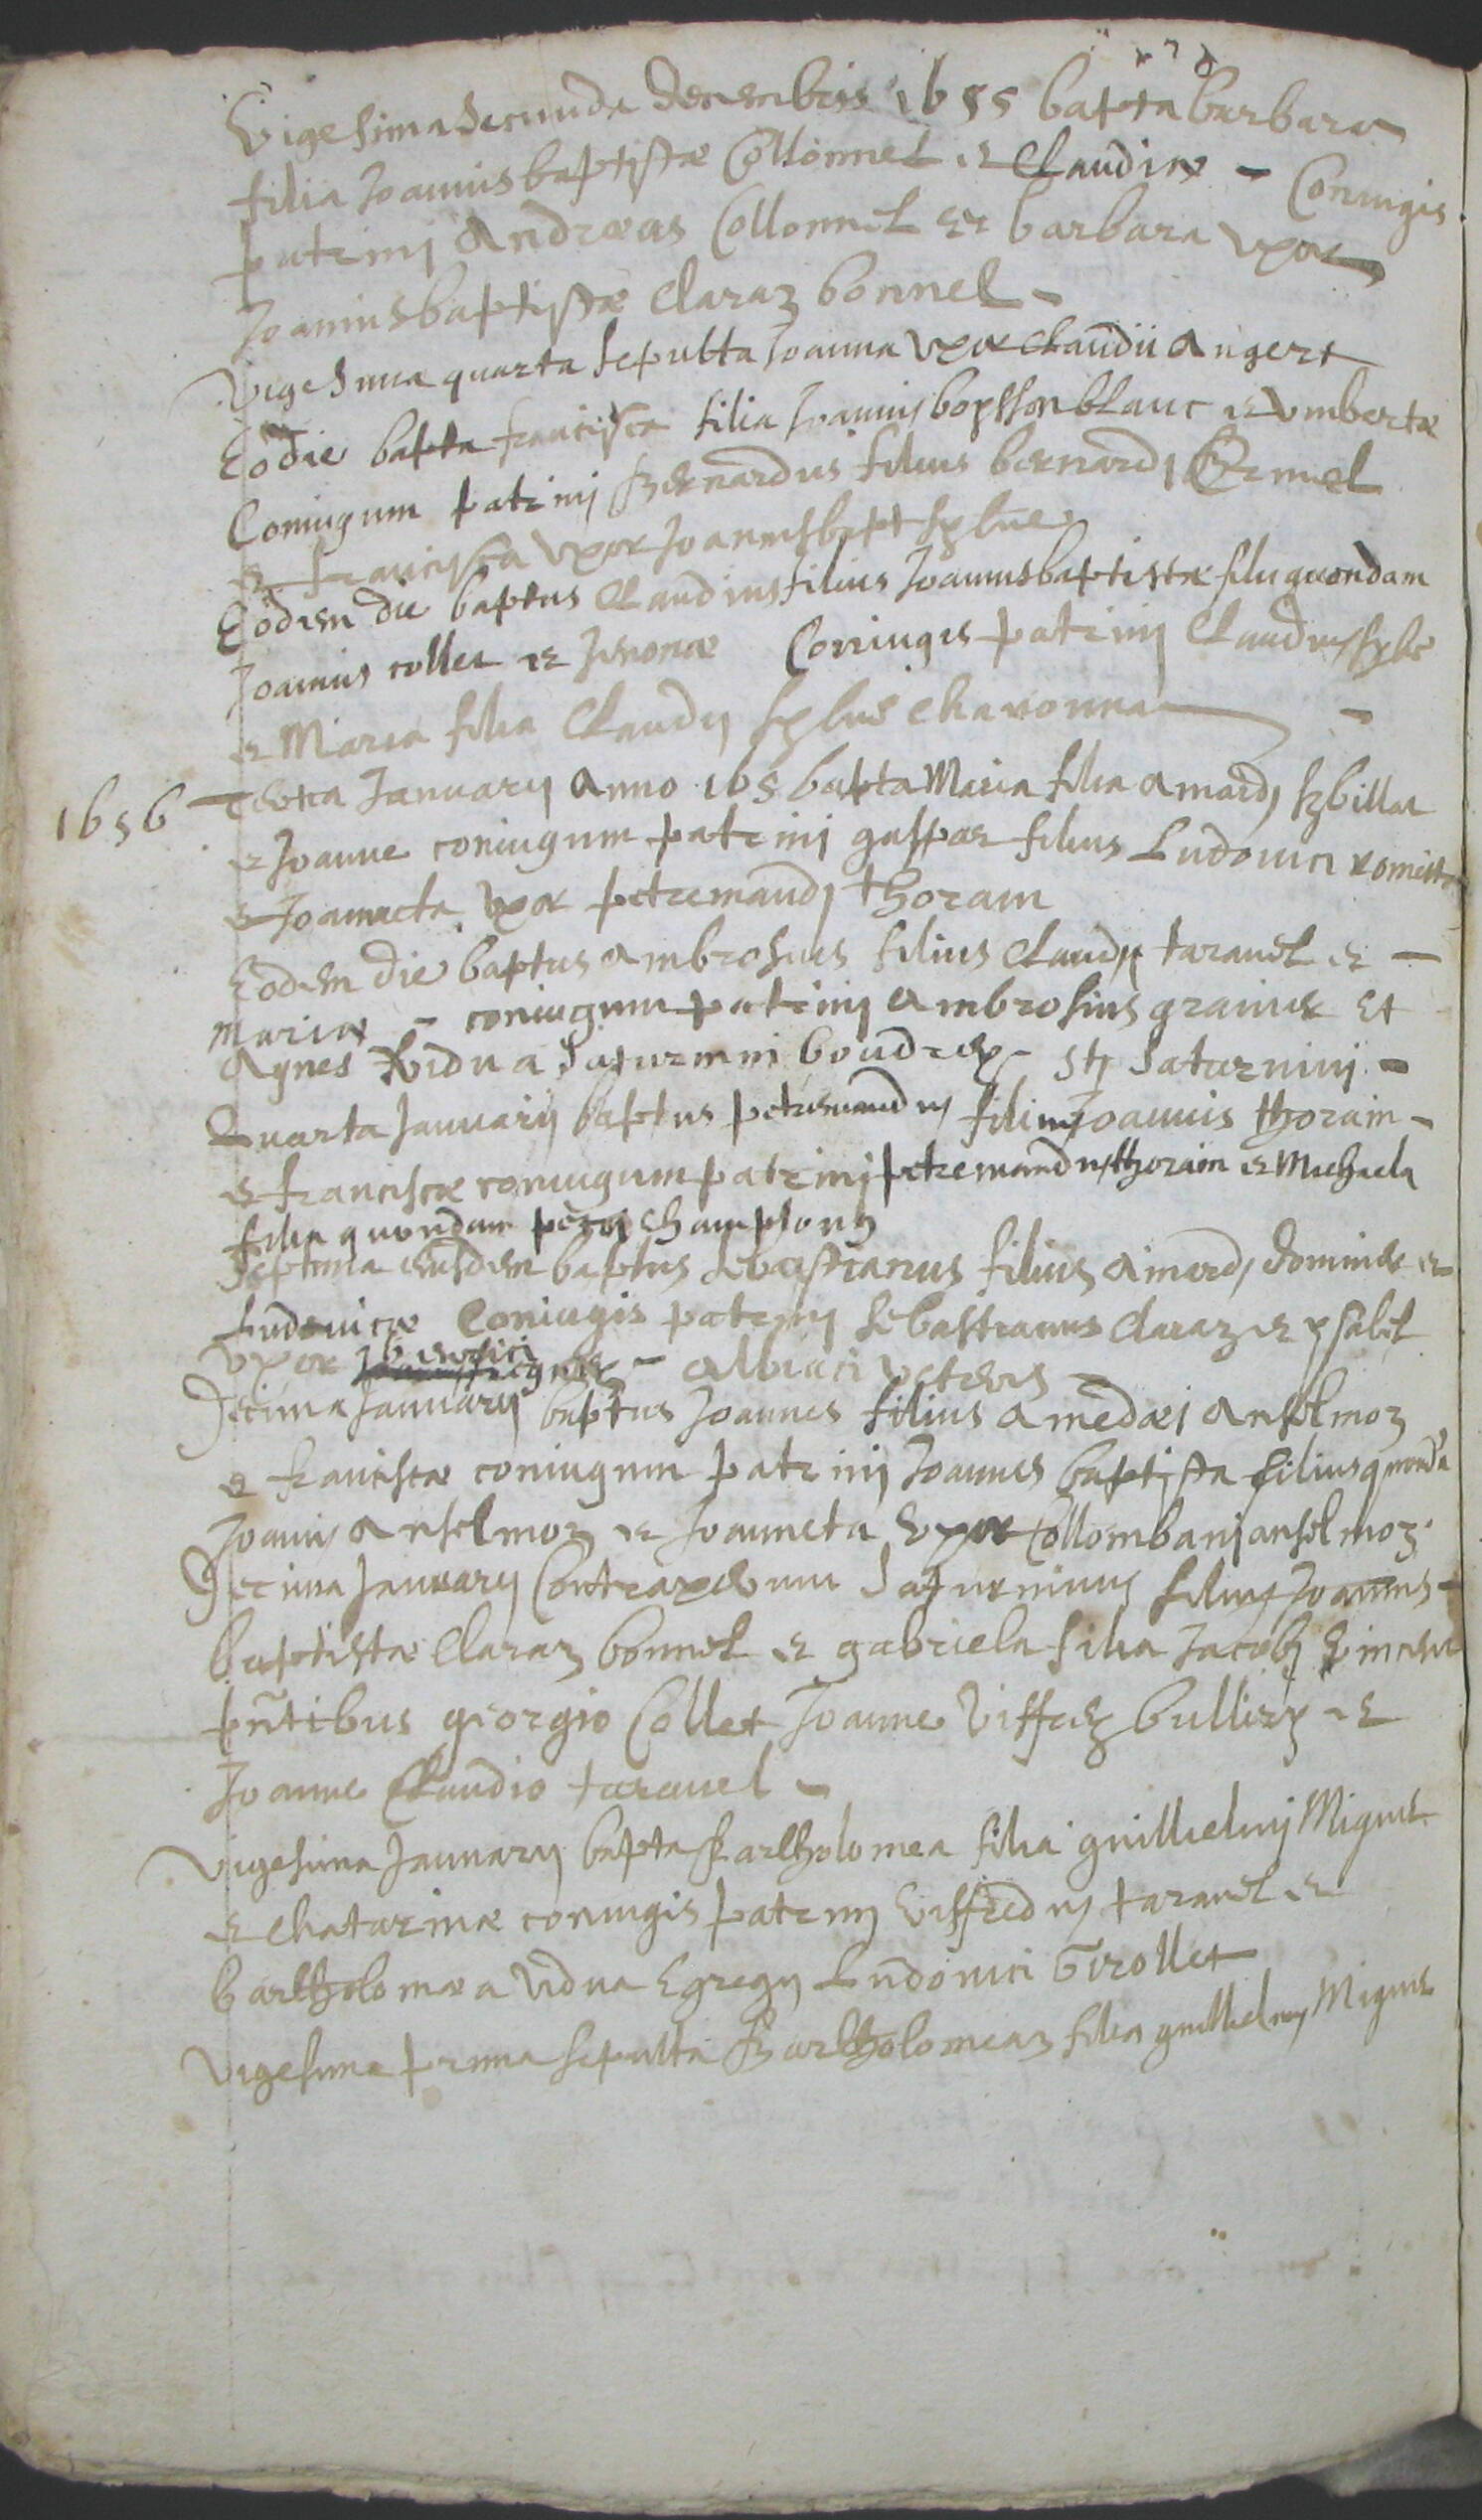 Vigesima Secunda decembris 1655 bapta barbara
filia Joannis baptistæ Collonnel et Claudiæ - Coniugis
patrinj Andreas Collonnel et barbara vxor
Joannis baptistæ Claraz bonnel -
Vigesima quarta sepulta Joanna vxor Claudii Angert
Eo die bapta francisca filia Joannis blanc et vmbertæ
Coniugum patrinj Bernardus filius bernardj
et francisca vxor Joannis bapt
Eodem die baptus Claudius filius Joannis baptistæ filii quondam
Joannis collet et Coniugis patrinj Claudius
et Maria filia Claudij chauonna
1656
tertia Januarij Anno 165 bapta Maria filia Amardj
et Joanne coniugum patrinj gaspar filius Ludouici
et Joanneta vxor petremandj thorain
Eodem die baptus Ambrosius filius Claudij tarauel et -
Mariæ - coniugum patrinj Ambrosius et
Agnes vidua Saturnini boudrex - Sti Saturninj -
Quarta Januarij baptus petremandus filius Joannis thorain -
et franciscæ coniugum patrinj petremandus thorain et Michaela
filia quondam petri champlong
Septima eiusdem baptus Sebastianus filius Aimardj dominiet et
Ludouicæ Coniugis patrinj Sebastianus Claraz et ysabel
vxor - albiaci veteris -
Decima Januarij baptus Joannes filius Amedæi Anselmoz
et franciscæ coniugum patrinj Joannes baptista filius quondā
Joannis Anselmoz et Joanneta vxor Collombanj anselmoz.
Decima Januarij Contraxerunt Saturninus filius Joannis -
baptistæ Claraz bonnel et gabriela filia Jacobj vincent
pñtibus georgio Collet Joanne bullierz et
Joanne Claudio tarauel -
Vigesima Januarij bapta Bartholomea filia guillielmj Miguet
et chatarinæ coniugis patrinj viffredus tarauel et
bartholomæa vidua Egregij Ludouici Girollet
Vigesima prima sepulta Bartholomeaz filia guillielmj Miguet